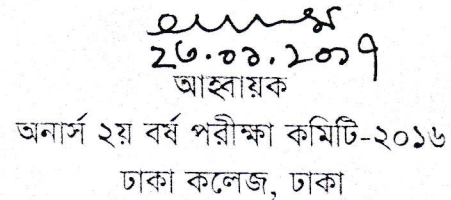 ২৬.০১.২০১৭
আহ্বায়ক
অনার্স ২য় বর্ষ পরীক্ষা কমিটি-২০১৬
ঢাকা কলেজ, ঢাকা